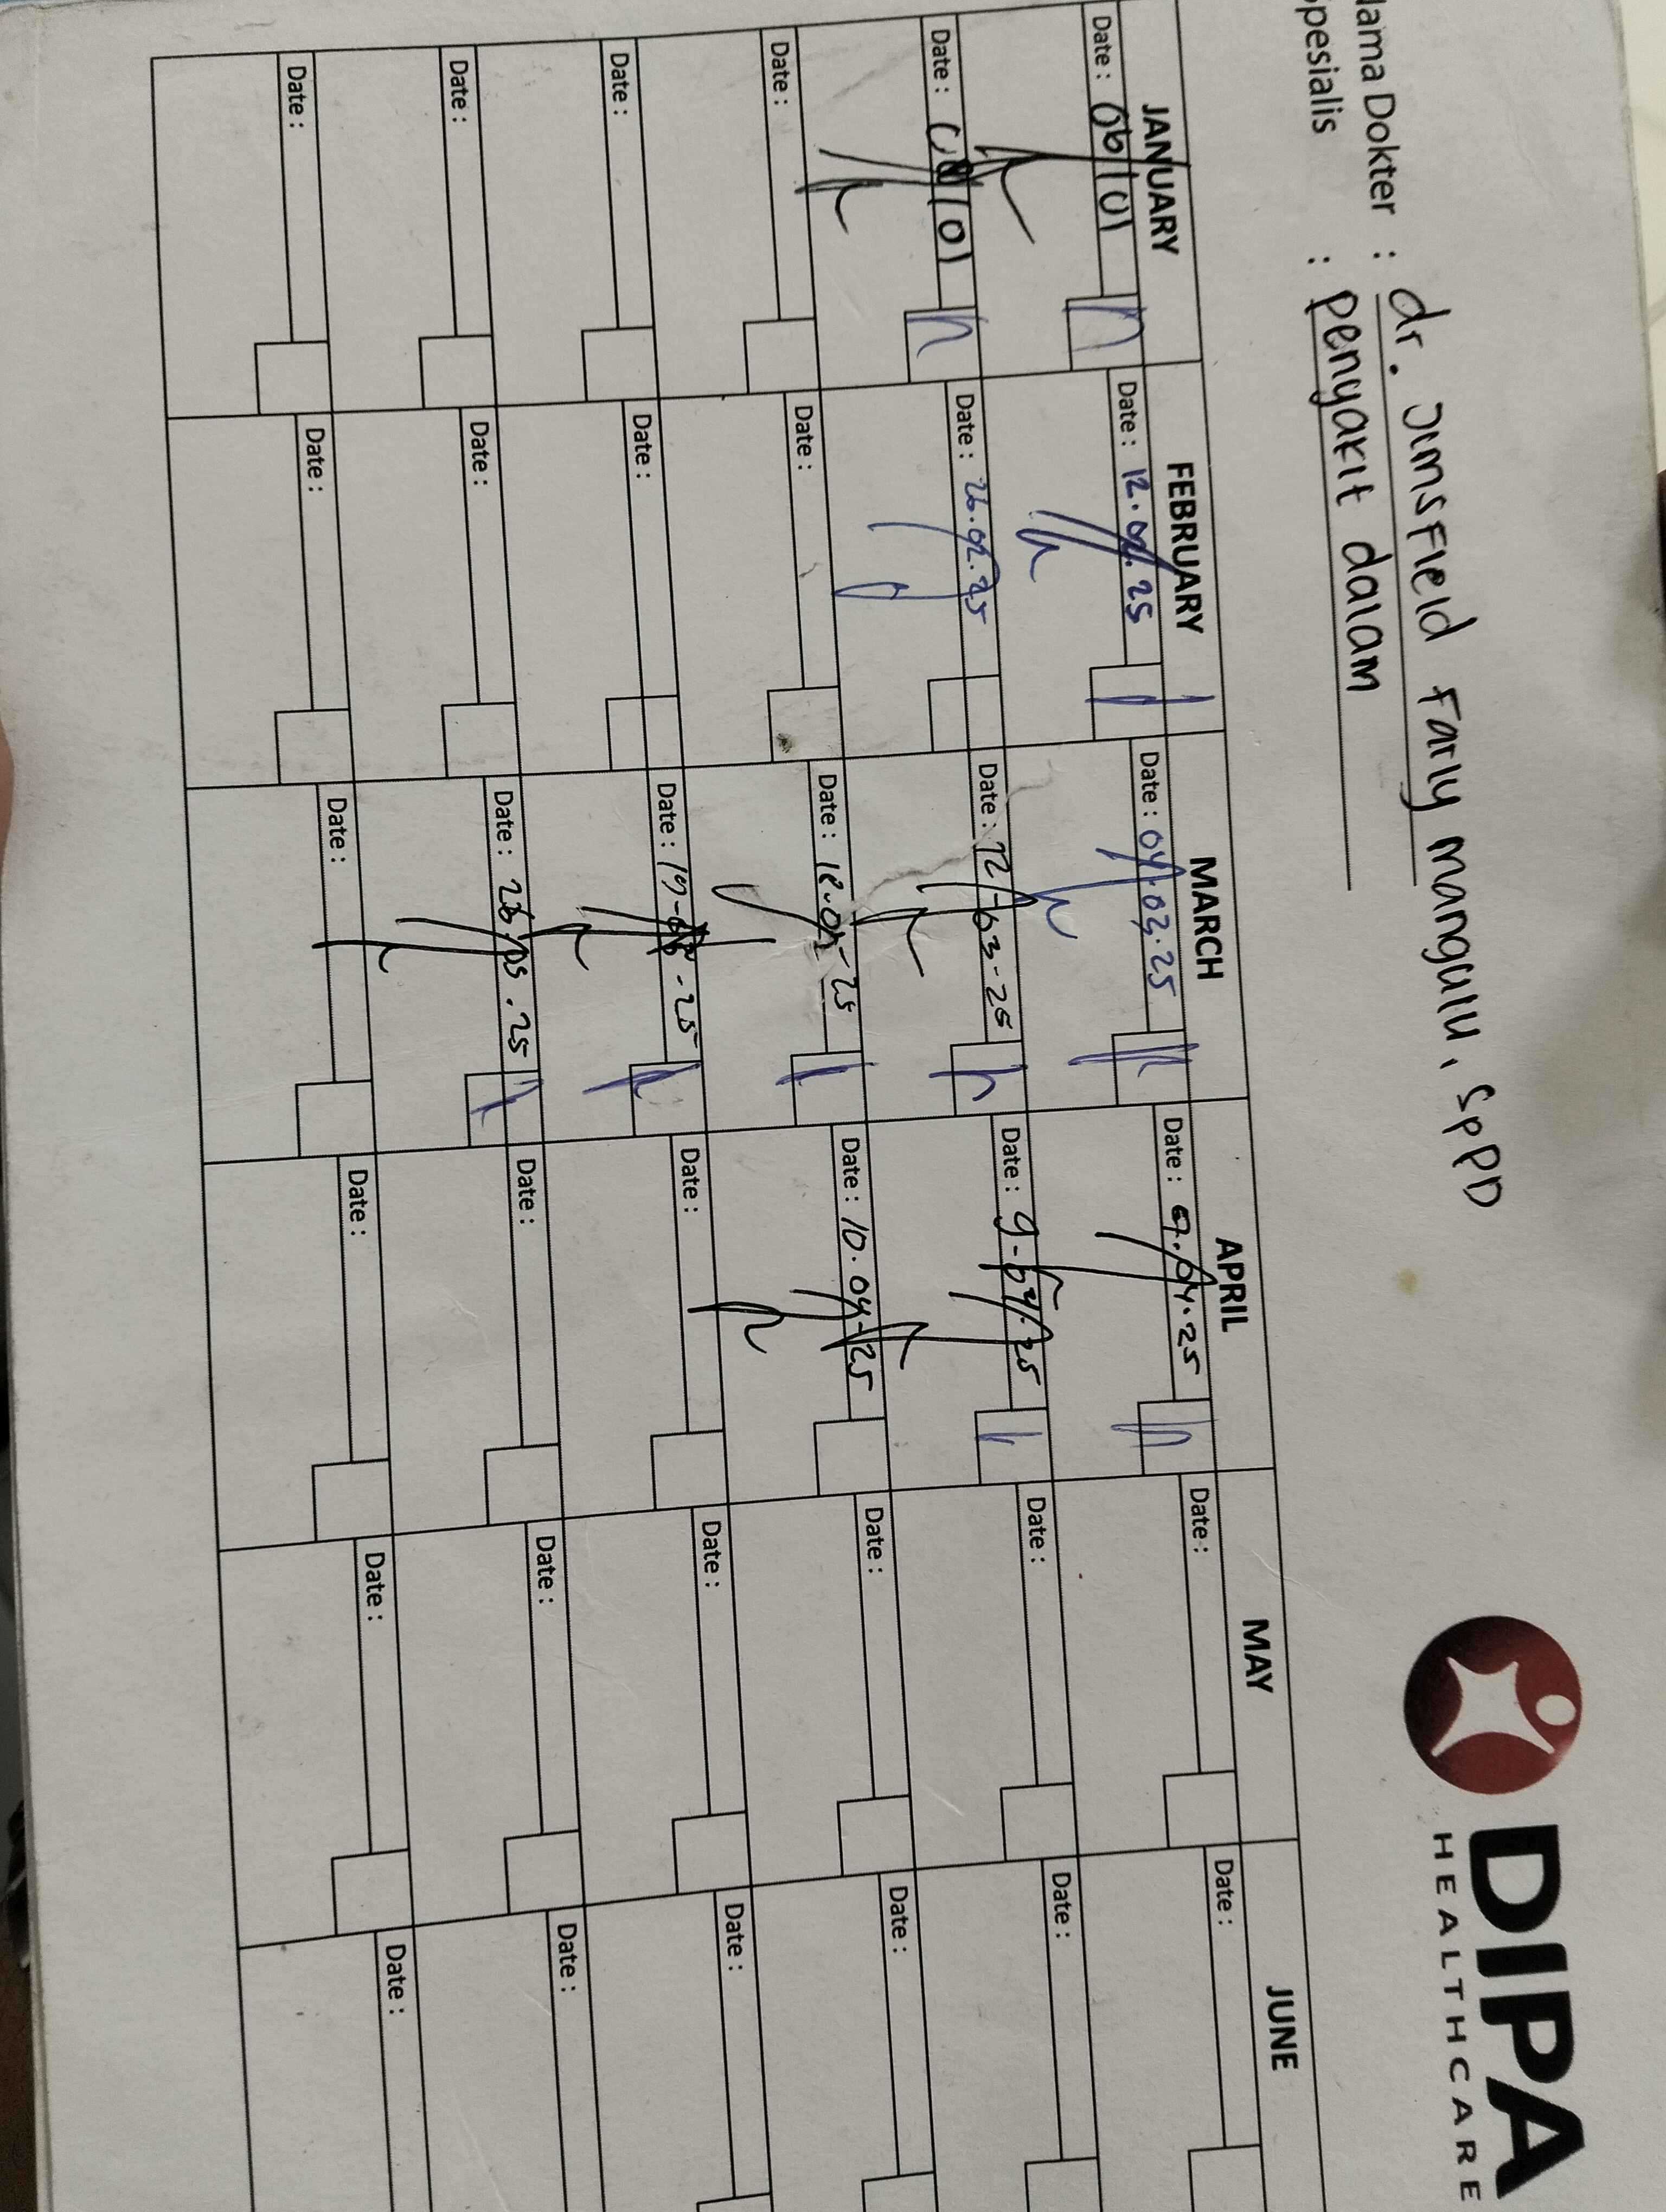 DIPA
HEALTHCARE
ama Dokter : dr. Jimsfield Farly mangalu, SpPD
pesialis : Penyakit dalam
JANUARY FEBRUARY MARCH APRIL MAY JUNE
Date : 06/01 Date : 12.02.25 Date : 04.03.25 Date : .04.25 Date : Date :
Date : /01 Date : 26.02.25 Date : 12-03-25 Date : 9-04-25 Date : Date :
Date : Date : Date : 18.03-25 Date : 10.04-25 Date : Date :
Date : Date : Date : 19-03-25 Date : Date : Date :
Date : Date : Date : 26.03.25 Date : Date : Date :
Date : Date : Date : Date : Date : Date :